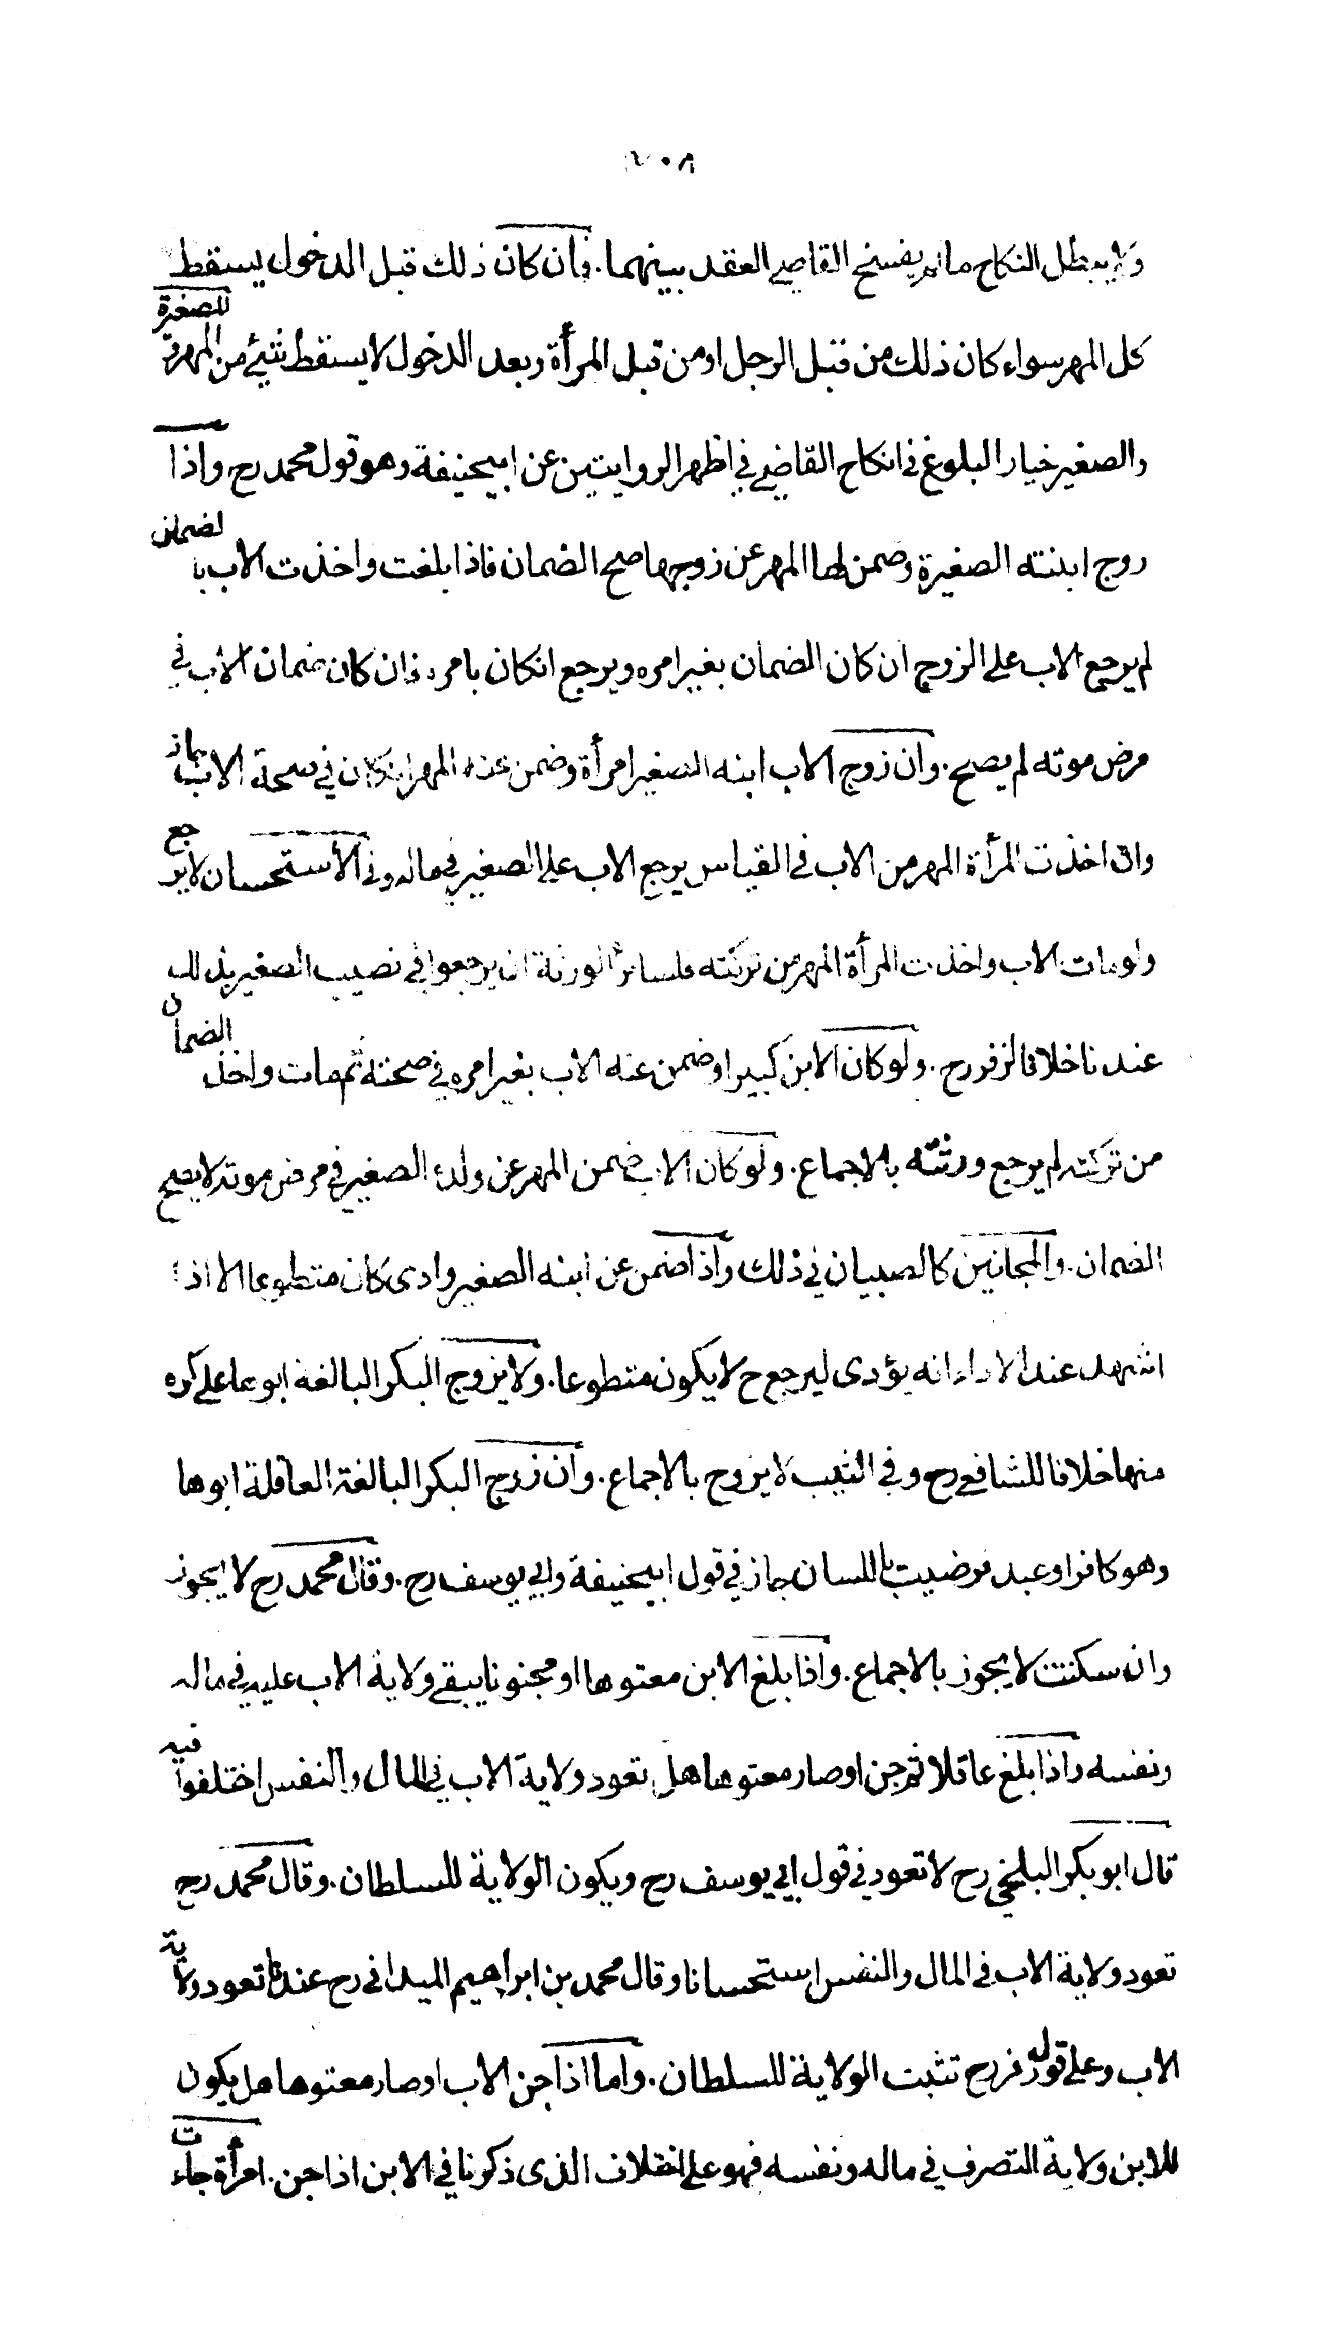 ٢٠٨
ولا يبطل النكاح ما لم يفسخ القاضي العقد بينهما. فان كان ذلك قبل الدخول يسقط
كل المهر سواء كان ذلك من قبل الرجل او من قبل المرأة وبعد الدخول لا يسقط شيئ من المهر و للصغيرة
والصغير خيار البلوغ في انكاح القاضي في اظهر الروايتين عن ابيحنيفة وهو قول محمد رح واذا
زوج ابنته الصغيرة وضمن لها المهر عن زوجها صح الضمان فاذا بلغت واخذت الاب بالضمان
لم يرجع الاب على الزوج ان كان الضمان بغير امره ويرجع انكان بامره فان كان ضمان الاب في
مرض موته لم يصح. وان زوج الاب ابنه الصغير امرأة وضمن عنه المهر انكان في صحة الاب جاز
وان اخذت المرأة المهر من الاب في القياس يرجع الاب على الصغير في ماله وفي الأستحسان لا يرجع
ولو مات الاب واخذت المرأة المهر من تركته فلسائر الورثة ان يرجعوا في نصيب الصغير بذلك
عندنا خلافا لزفر رح. ولو كان الابن كبيرا وضمن عنه الاب بغير امره في صحته ثم مات واخذ الضمان
من تركته لم يرجع ورثته بالاجماع. ولو كان الاب ضمن المهر عن ولده الصغير في مرض موته لا يصح
الضمان. والمجانين كالصبيان في ذلك واذا ضمن عن ابنه الصغير وادى كان متطوعا الا اذا
اشهد عند الاداء انه يؤدى ليرجع ح لا يكون متطوعا. ولا يزوج البكر البالغة ابوها على كره
منها خلافا للشافعي رح وفي الثيب لا يزوج بالاجماع. وان زوج البكر البالغة العاقلة ابوها
وهو كافر او عبد فرضيت باللسان جاز في قول ابيحنيفة وابي يوسف رح. وقال محمد رح لا يجوز
وان سكتت لا يجوز بالاجماع. واذا بلغ الابن معتوها او مجنونا يبقى ولاية الاب عليه في ماله
ونفسه واذا بلغ عاقلا ثم جن او صار معتوها هل تعود ولاية الاب في المال والنفس اختلفوا فيه
قال ابو بكر البلخي رح لا تعود في قول ابي يوسف رح ويكون الولاية للسلطان. وقال محمد رح
تعود ولاية الاب في المال والنفس استحسانا وقال محمد بن ابراهيم الميداني رح عندنا تعود ولاية
الاب وعلى قول زفر رح تثبت الولاية للسلطان. واما اذا جن الاب او صار معتوها هل يكون
للابن ولاية التصرف في ماله ونفسه فهو على اختلاف الذى ذكرنا في الابن اذا جن. امرأة جاءت